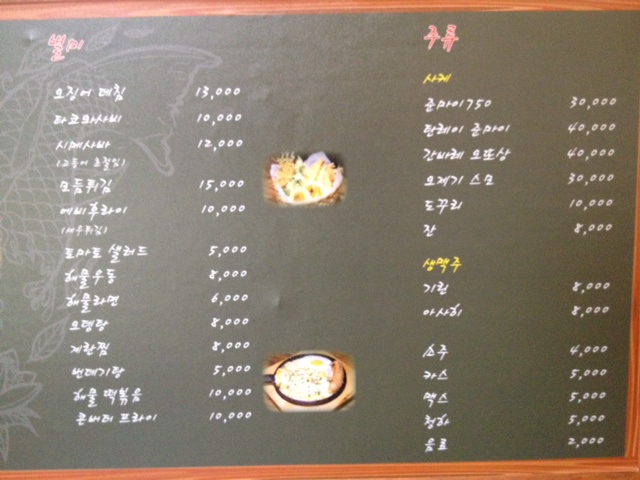 별미
오징어 데침 13,000
타코와사비 10,000
시메사바 12,000
(고등어 초절임)
모듬튀김 15,000
에비후라이 10,000
(새우튀김)
토마토 샐러드 5,000
해물우동 8,000
해물라면 6,000
오뎅탕 8,000
계란찜 8,000
번데기탕 5,000
해물 떡볶음 10,000
콘버터 프라이 10,000
주류
사케
준마이750 30,000
탄레이 준마이 40,000
간바레 오또상 40,000
오제기 스모 30,000
도꾸리 10,000
잔 8,000
생맥주
기린 8,000
아사히 8,000
소주 4,000
카스 5,000
맥스 5,000
청하 5,000
음료 2,000